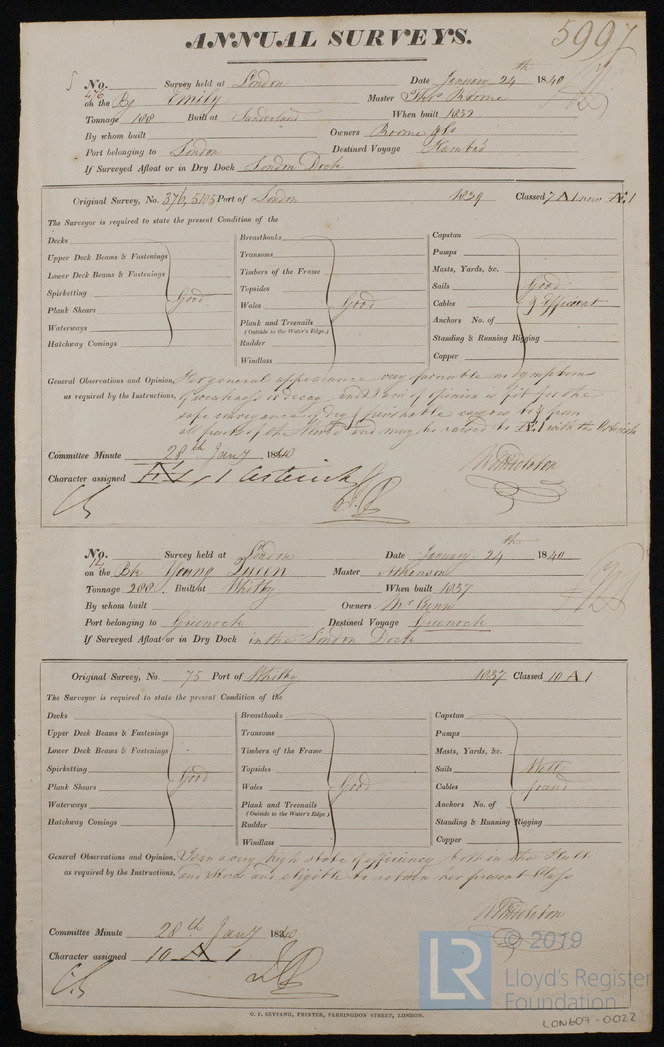 ANNUAL SURVEYS.
5997
No. Survey held at London Date January 24th 1840
on the Bg Emily Master Thos Roome
Tonnage 188 Built at Sunderland When built 1832
By whom built Owners Roome & Co
Port belonging to London Destined Voyage Hambro
If Surveyed Afloat or in Dry Dock London Dock
Original Survey, No. 376, 5105 Port of London 1839 Classed 7 A 1 now Æ.1
The Surveyor is required to state the present Condition of the
Decks Breasthooks Capstan
Upper Deck Beams & Fastenings Transoms Pumps
Lower Deck Beams & Fastenings Timbers of the Frame Masts, Yards, &c.
Spirketting Good Topsides Sails Good
Plank Shears Wales Good Cables & Efficient
Waterways Plank and Treenails (Outside to the Water's Edge.) Anchors No. of
Hatchway Comings Rudder Standing & Running Rigging
Windlass Copper
General Observations and Opinion, Her general appearance very favorable no symptoms
as required by the Instructions, of weakness or decay and I am of opinion is fit for the
safe conveyance of dry & perishable cargoes to & from
all parts of the World and may be raised to Æ.1 with the Asterisk
Committee Minute 28th Jany 1840
Character assigned Æ 1 Asterisk
No. Survey held at London Date January 24th 1840
on the Bk Young Queen Master Atkinson
Tonnage 288 Built at Whitby When built 1837
By whom built Owners
Port belonging to Greenock Destined Voyage Greenock
If Surveyed Afloat or in Dry Dock in the London Dock
Original Survey, No. 75 Port of Whitby 1837 Classed 10 A 1
The Surveyor is required to state the present Condition of the
Decks Breasthooks Capstan
Upper Deck Beams & Fastenings Transoms Pumps
Lower Deck Beams & Fastenings Timbers of the Frame Masts, Yards, &c.
Spirketting Good Topsides Sails Well
Plank Shears Wales Good Cables found
Waterways Plank and Treenails (Outside to the Water's Edge.) Anchors No. of
Hatchway Comings Rudder Standing & Running Rigging
Windlass Copper
General Observations and Opinion, Is in a very high state of efficiency both in the Hull
as required by the Instructions, and Stores and eligible to retain her present Class
Committee Minute 28th Jany 1840
Character assigned 10 A 1
LR © 2019
Lloyd's Register
Foundation
C. F. SEYFANG, PRINTER, FARRINGDON STREET, LONDON.
LON609-0022